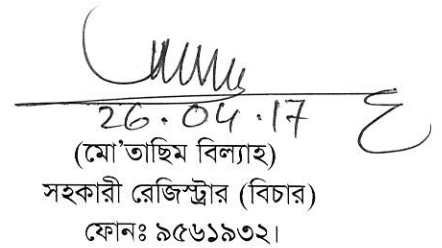 26.04.17
(মো'তাছিম বিল্যাহ)
সহকারী রেজিস্ট্রার (বিচার)
ফোনঃ ৯৫৬১৯৩২।